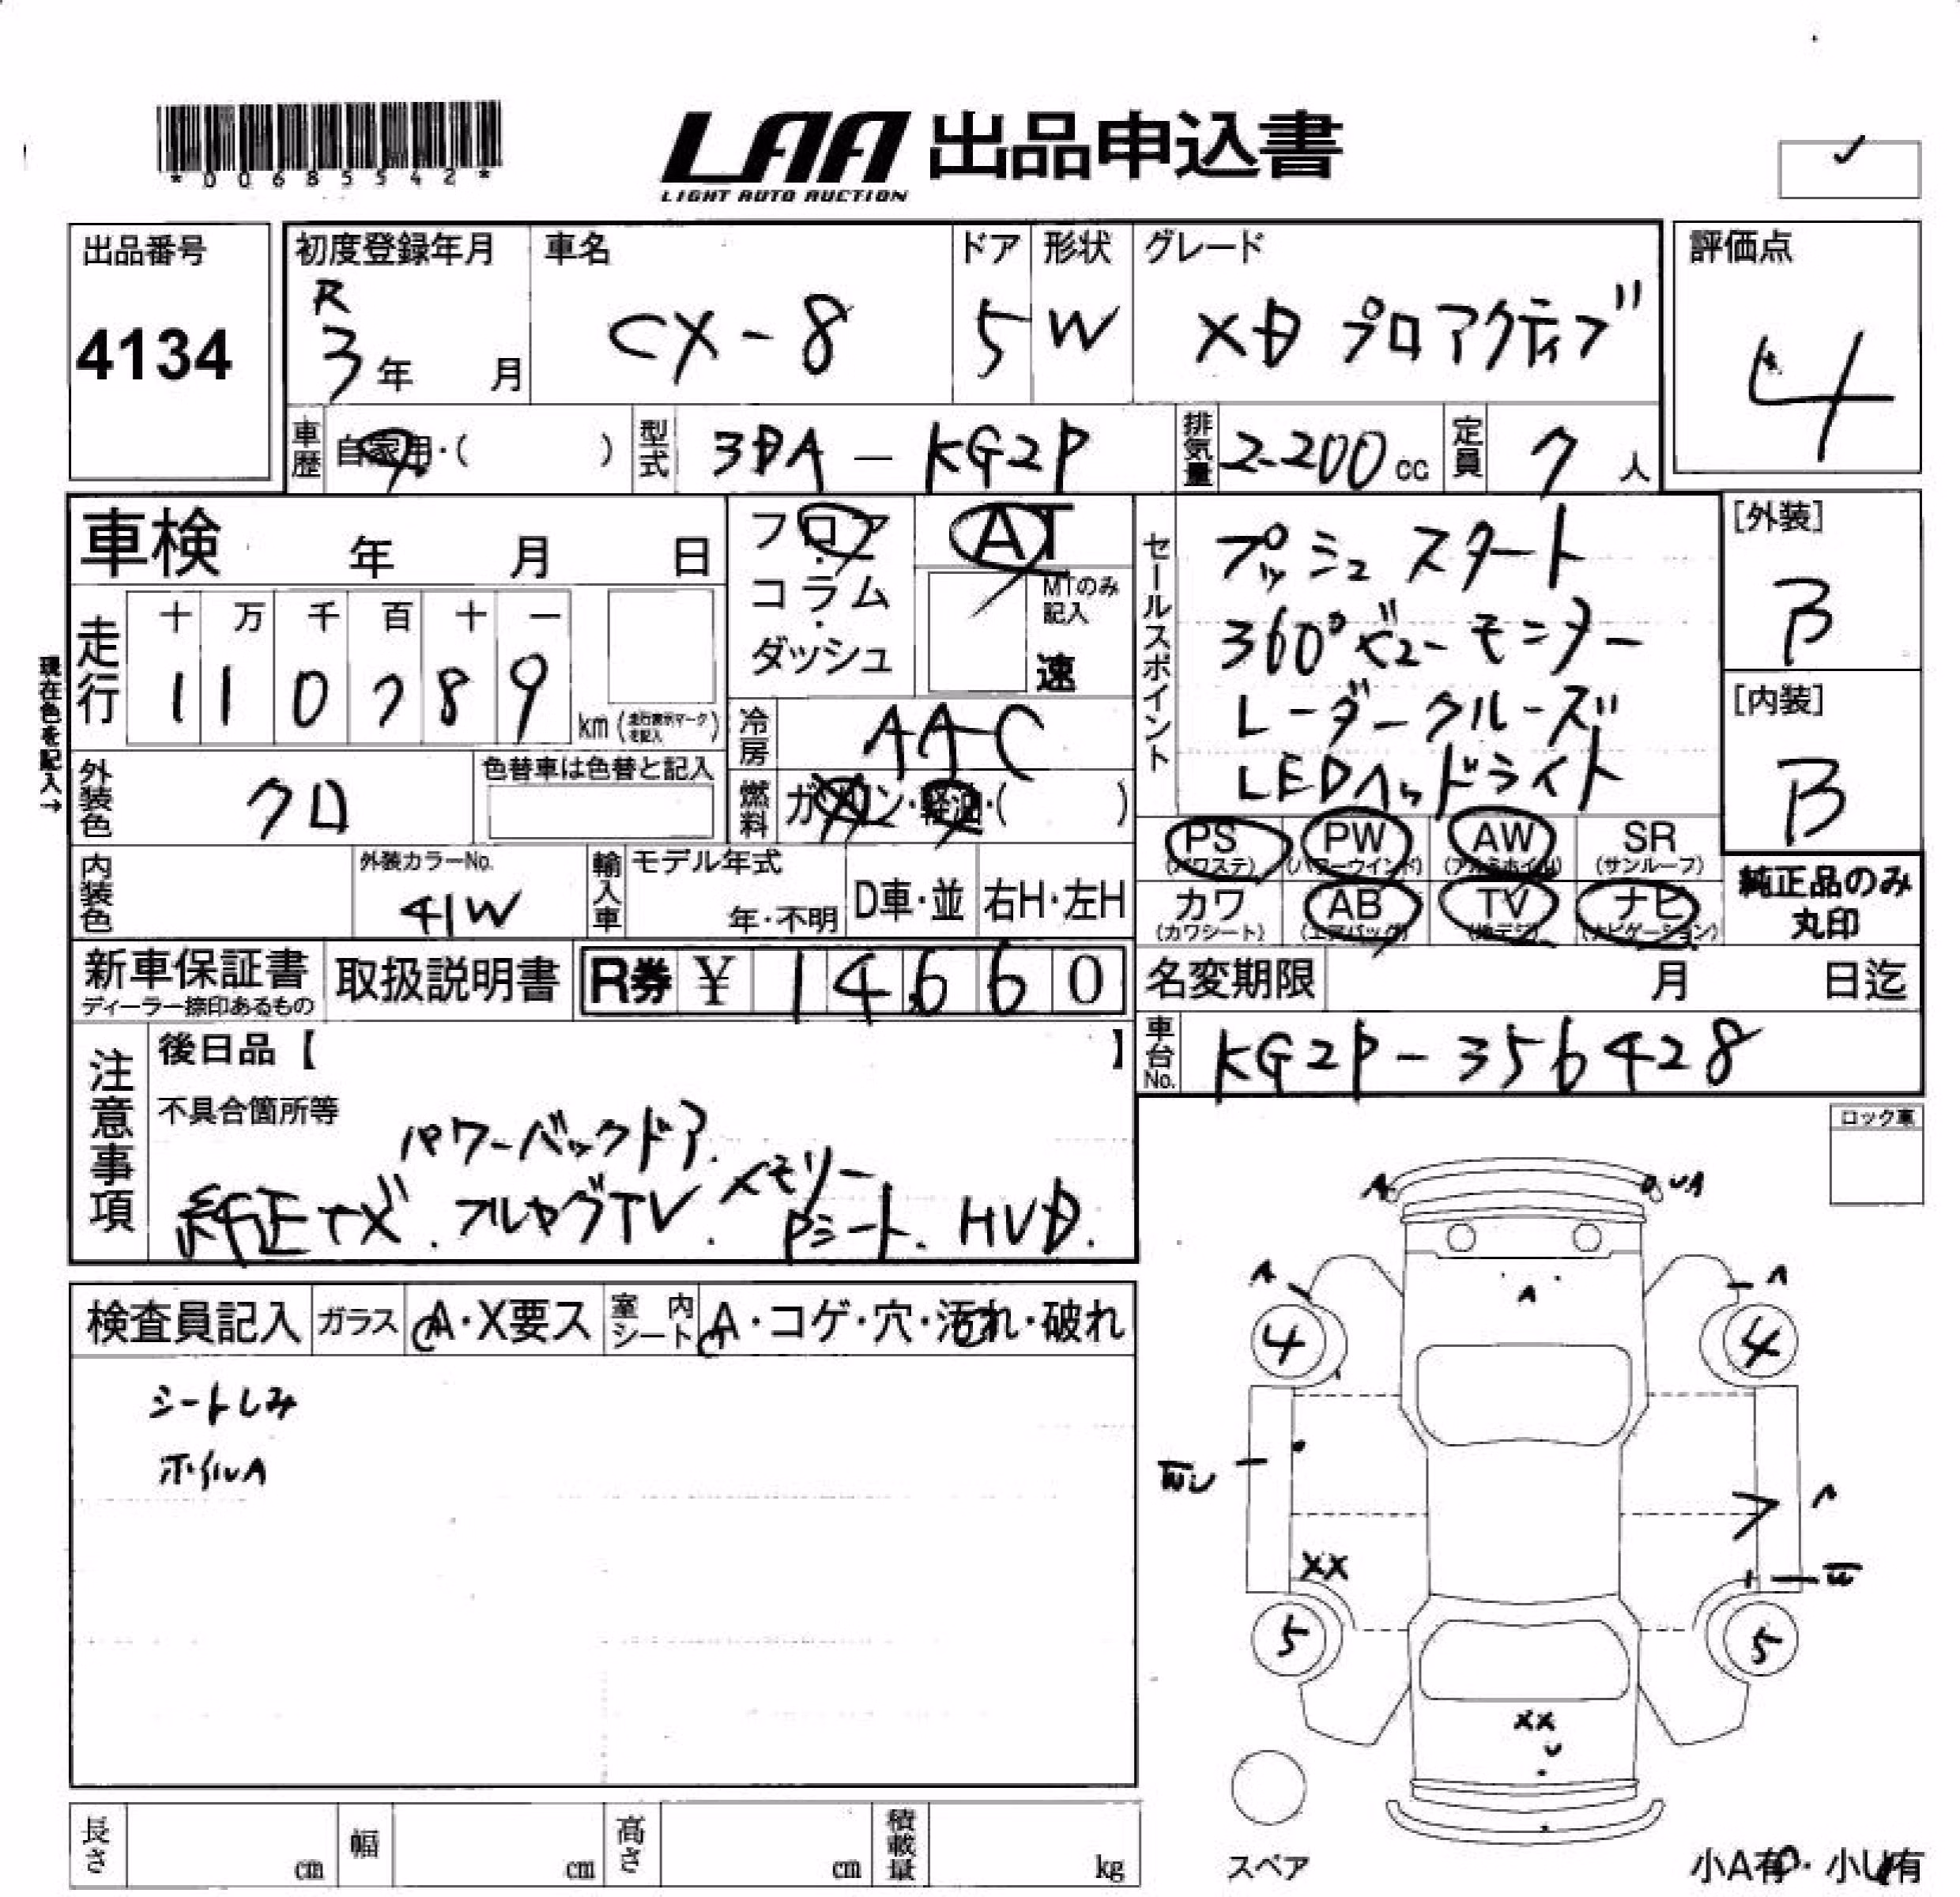 *0068554 2*
LAA 出品申込書
LIGHT AUTO AUCTION
出品番号
4134
初度登録年月
R
3年 月
車名
CX-8
ドア
5
形状
W
グレード
XD プロアクティブ
評価点
4
車歴
自家用・( )
型式
3DA-KG2P
排気量
2-200 cc
定員
7 人
車検 年 月 日
フロア・コラム・ダッシュ
AT
MTのみ記入
速
セールスポイント
プッシュスタート
360°ビューモニター
レーダークルーズ
LEDヘッドライト
[外装]
B
[内装]
B
現在色を記入→
走行
十 万 千 百 十 一
1 1 0 7 8 9
km (走行表示マークを記入)
冷房
AAC
燃料
ガソリン・軽油・( )
外装色
クロ
色替車は色替と記入
内装色
外装カラーNo.
41W
輸入車
モデル年式
年・不明
D車・並
右H・左H
PS
(パワステ)
PW
(パワーウインド)
AW
(アルミホイル)
SR
(サンルーフ)
カワ
(カワシート)
AB
(エアバッグ)
TV
(地デジ)
ナビ
(ナビゲーション)
純正品のみ
丸印
新車保証書
ディーラー捺印あるもの
取扱説明書
R券 ¥ 1 4 6 6 0
名変期限 月 日迄
車台No.
KG2P-356428
注意事項
後日品【 】
不具合箇所等
パワーバックドア.
純正ナビ. フルセグTV. メモリー
Pシート. HUD.
ロック車
検査員記入
ガラス
A・X要ス
室内シート
A・コゲ・穴・汚れ・破れ
シートしみ
ホイルA
A
UA
A
A
A
4
4
A
XX
5
5
XX
U
スペア
小A有・小U有
長さ cm
幅 cm
高さ cm
積載量 kg